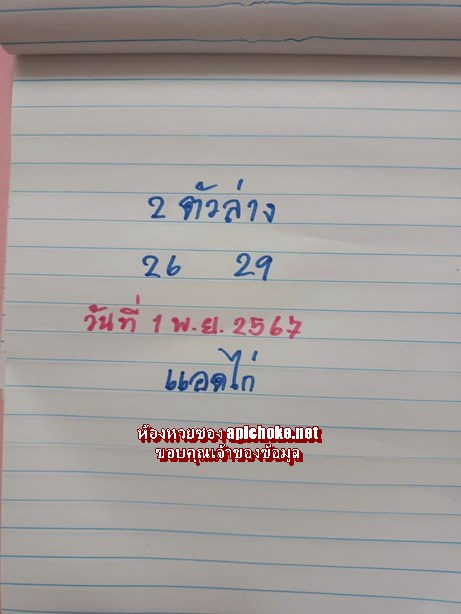 2 ตัวล่าง
26 29
วันที่ 1 พ.ย. 2567
แอดไก่
ห้องหวยซอง apichoke.net
ขอบคุณเจ้าของข้อมูล